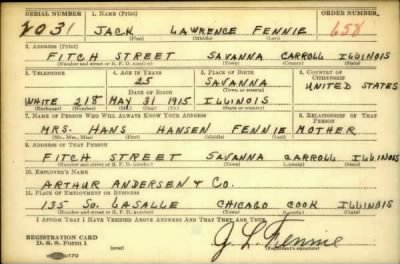 SERIAL NUMBER 1. NAME (Print) ORDER NUMBER
2031 JACK LAWRENCE FENNIE 658
(First) (Middle) (Last)
2. ADDRESS (Print)
FITCH STREET SAVANNA CARROLL ILLINOIS
(Number and street or R. F. D. number) (Town) (County) (State)
3. TELEPHONE 4. AGE IN YEARS 5. PLACE OF BIRTH 6. COUNTRY OF CITIZENSHIP
25 SAVANNA
DATE OF BIRTH (Town or county) UNITED STATES
WHITE 218 MAY 31 1915 ILLINOIS
(Exchange) (Number) (Mo.) (Day) (Yr.) (State or country)
7. NAME OF PERSON WHO WILL ALWAYS KNOW YOUR ADDRESS 8. RELATIONSHIP OF THAT PERSON
MRS. HANS HANSEN FENNIE MOTHER
(Mr., Mrs., Miss) (First) (Middle) (Last)
9. ADDRESS OF THAT PERSON
FITCH STREET SAVANNA CARROLL ILLINOIS
(Number and street or R. F. D. number) (Town) (County) (State)
10. EMPLOYER'S NAME
ARTHUR ANDERSEN & CO.
11. PLACE OF EMPLOYMENT OR BUSINESS
135 SO. LASALLE CHICAGO COOK ILLINOIS
(Number and street or R. F. D. number) (Town) (County) (State)
I AFFIRM THAT I HAVE VERIFIED ABOVE ANSWERS AND THAT THEY ARE TRUE.
REGISTRATION CARD
D. S. S. Form 1 J. L. Fennie
(over) (Registrant's signature)